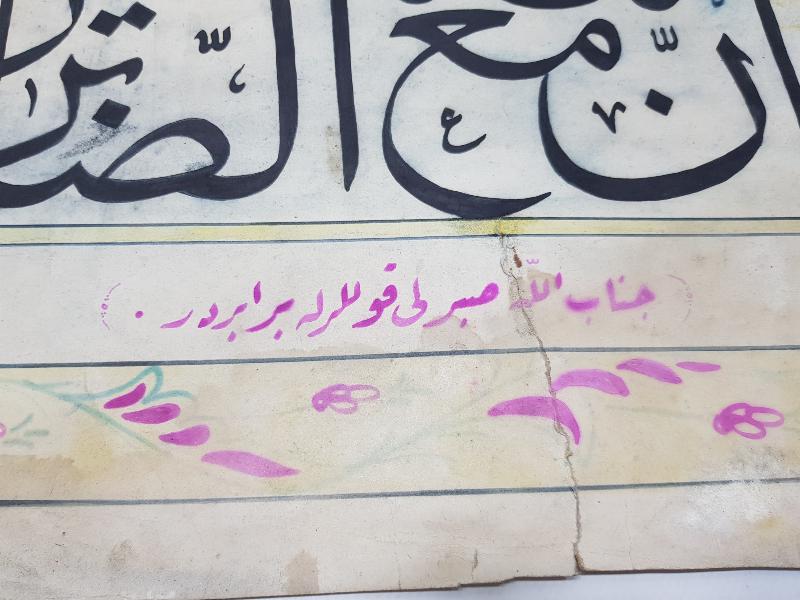 ان مع الصابرين
( جناب الله صبرلی قوللرله برابردر . )